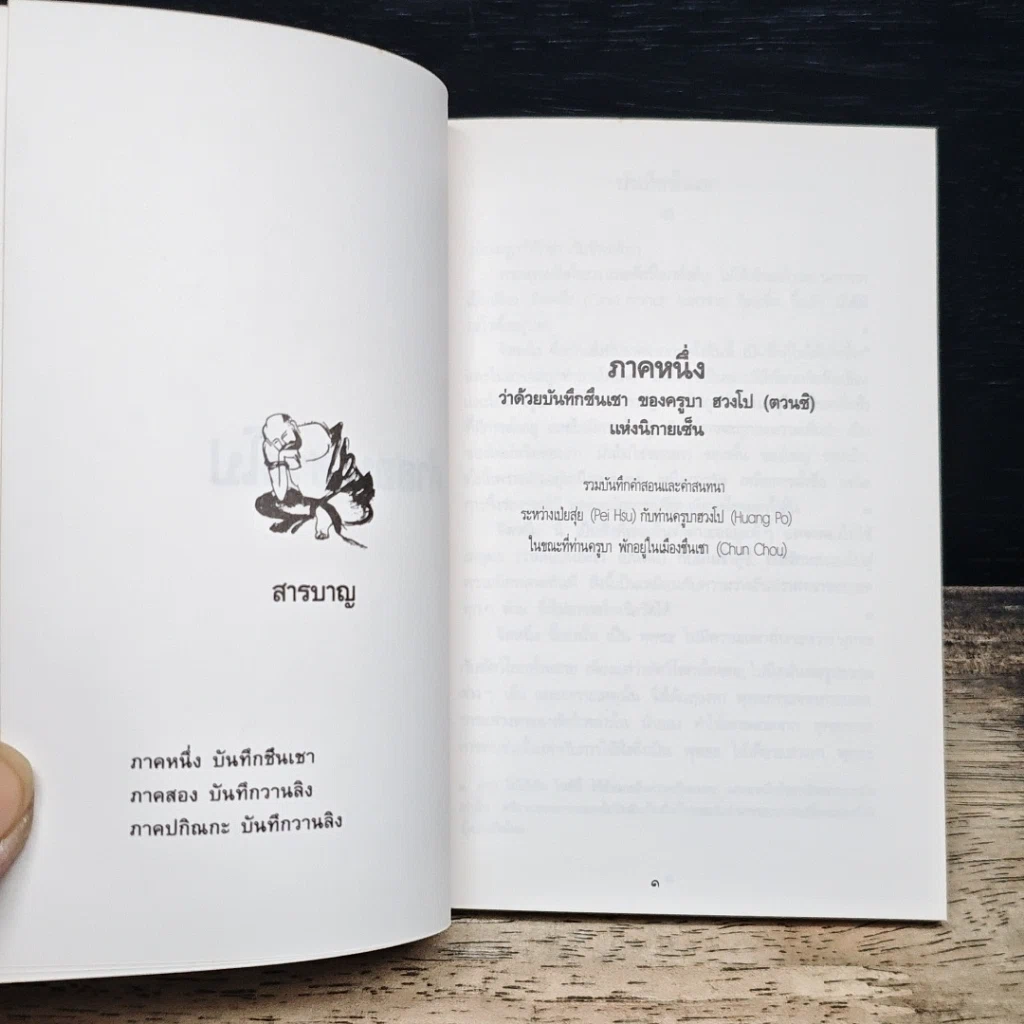 สารบาญ
ภาคหนึ่ง บันทึกชึนเชา
ภาคสอง บันทึกวานลิง
ภาคปกิณกะ บันทึกวานลิง
ภาคหนึ่ง
ว่าด้วยบันทึกชึนเชา ของครูบา ฮวงโป (ตวนซิ)
แห่งนิกายเซ็น
รวมบันทึกคำสอนและคำสนทนา
ระหว่างเป่ยสุ่ย (Pei Hsu) กับท่านครูบาฮวงโป (Huang Po)
ในขณะที่ท่านครูบา พักอยู่ในเมืองชึนเชา (Chun Chou)
๑